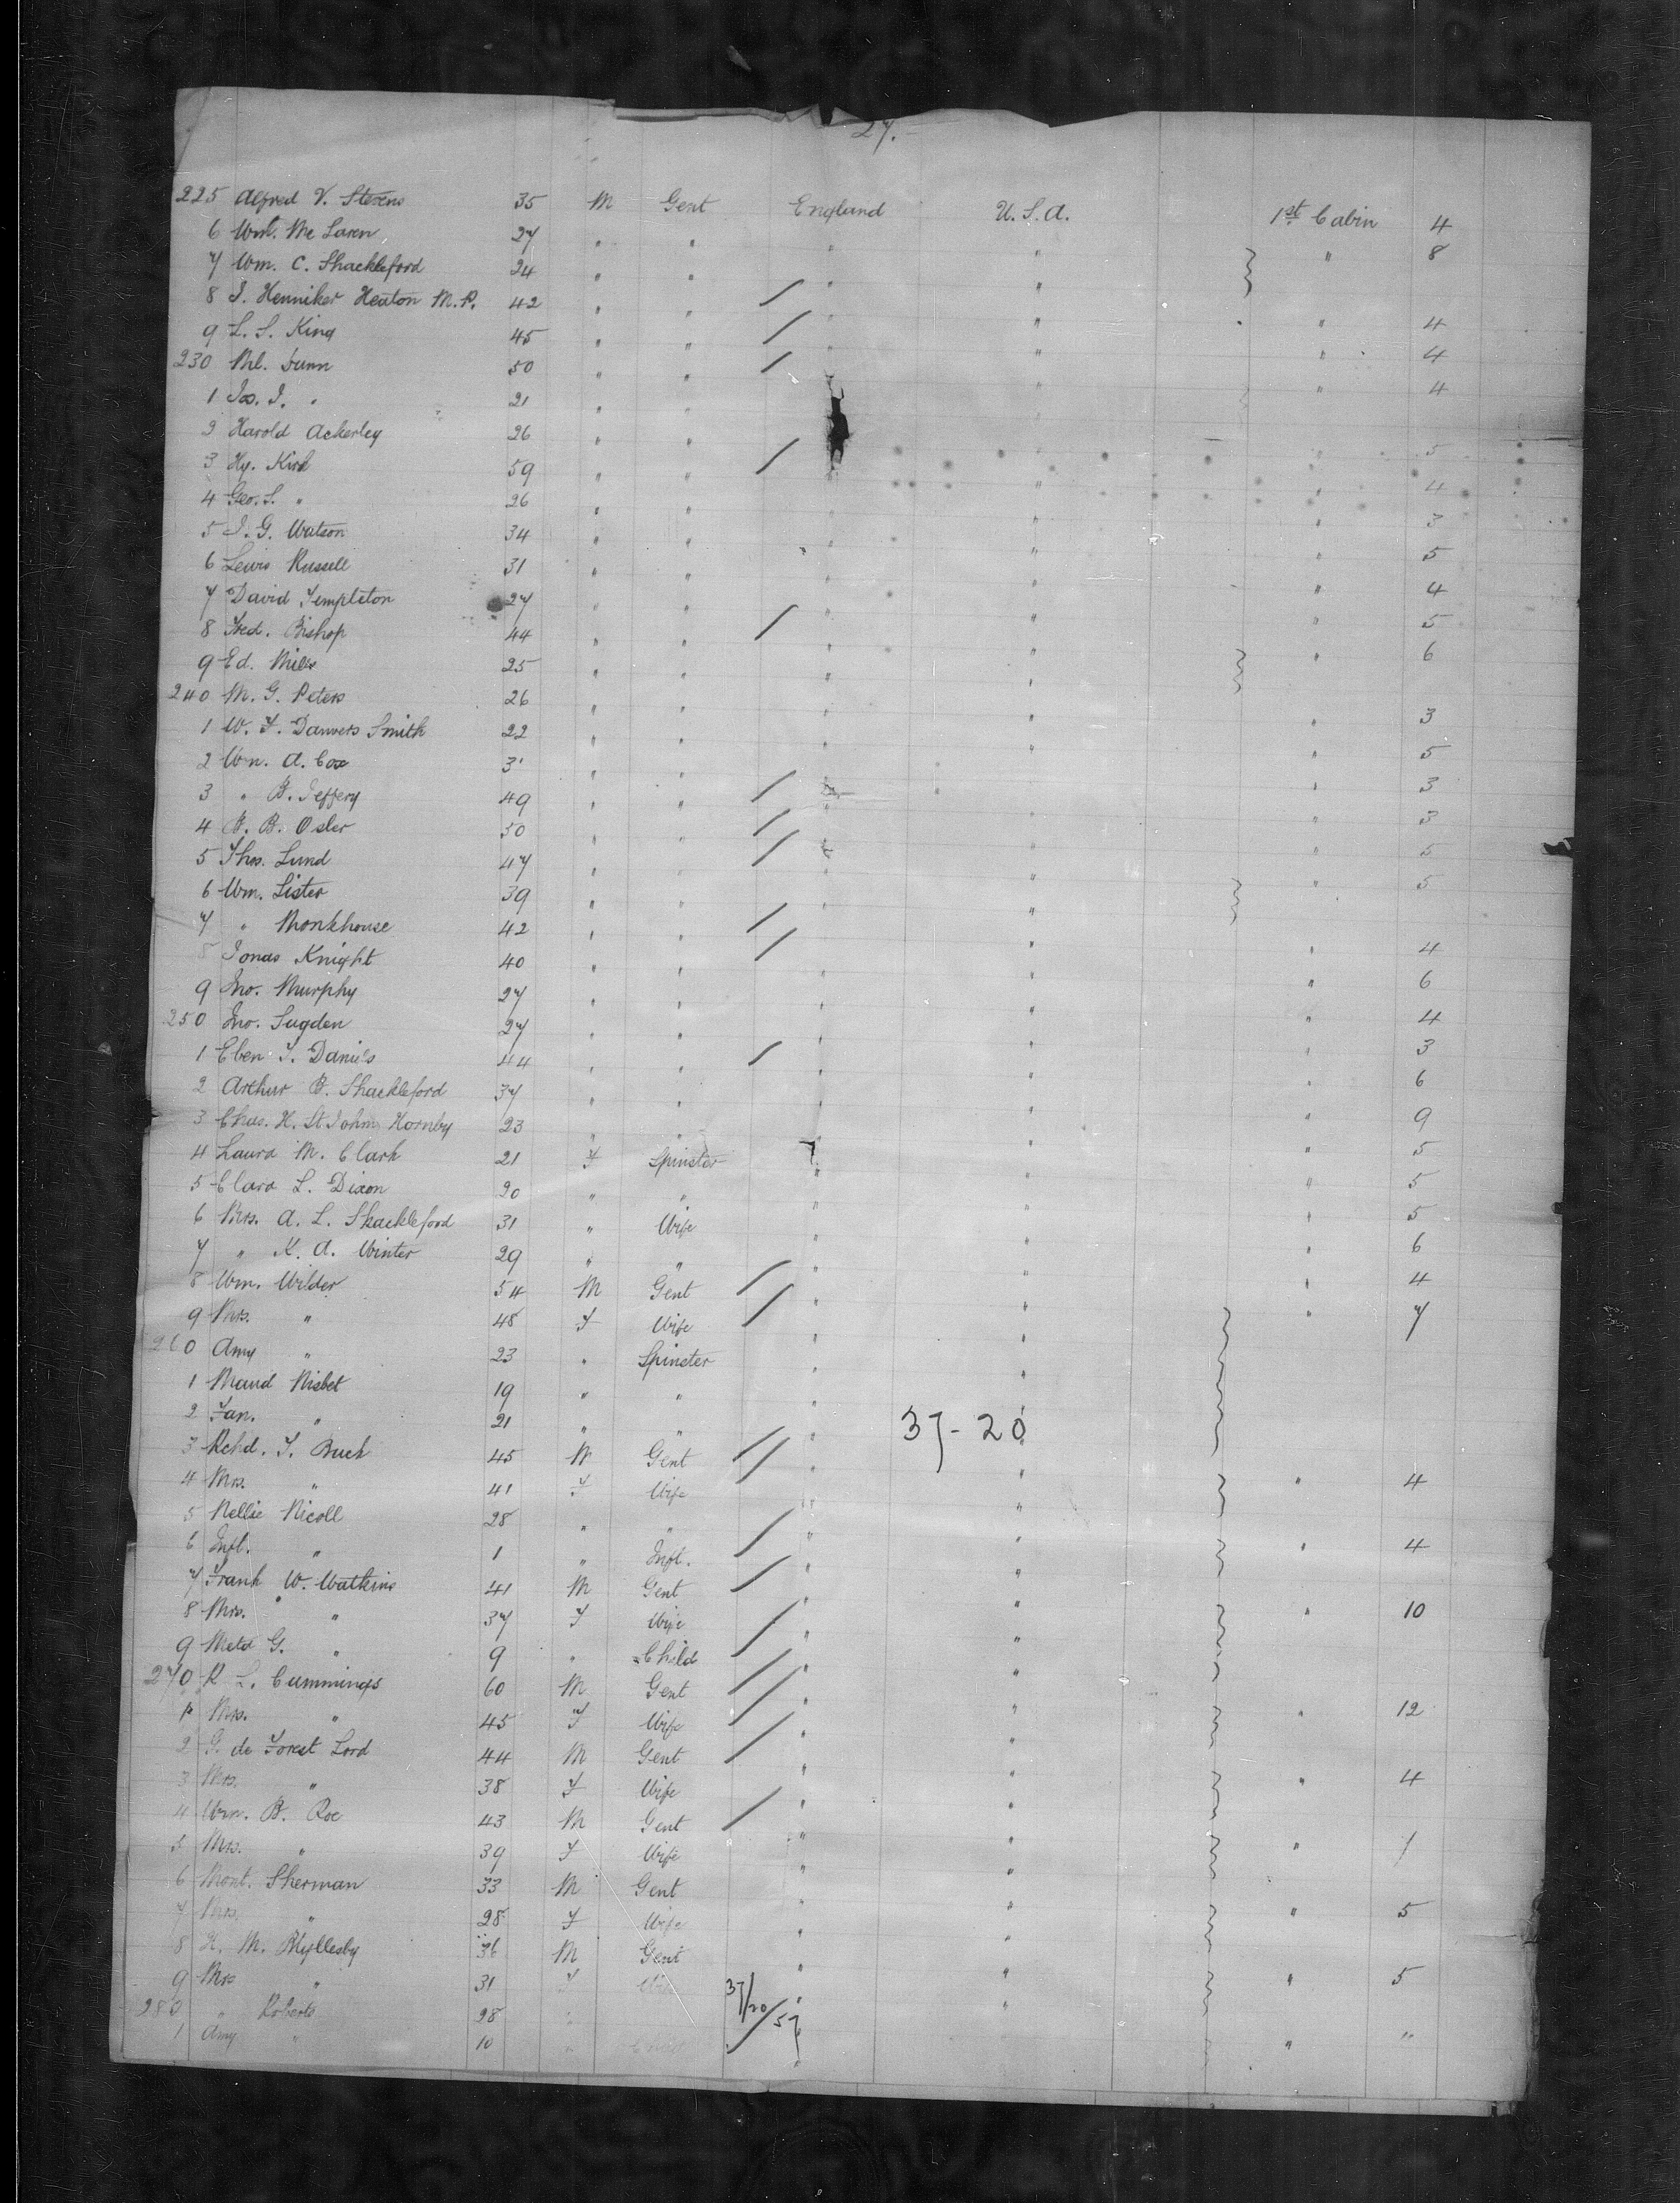 27.
225 Alfred V. Stevens 35 M Gent England U.S.A. 1st Cabin 4
6 Wm. Mc Laren 27 " " " " " 8
7 Wm. C. Shackleford 24 " " " "
8 J. Henniker Heaton M.P. 42 " " " " " 4
9 L. S. King 45 " " " " " 4
230 Ml. Dunn 50 " " " " " 4
1 Jos. J. " 21 " " "
2 Harold Ackerley 26 " " " " 5
3 Hy. Kirk 59 " " " " 4
4 Geo. S. " 26 " " " " " 3
5 J. G. Watson 34 " " " " " 5
6 Lewis Russell 31 " " " " " 4
7 David Templeton 27 " " " " " 5
8 Fred. Bishop 44 " " " " " 6
9 Ed. Miles 25 " " " "
240 M. G. Peters 26 " " " " " 3
1 W. F. Danvers Smith 22 " " " " " 5
2 Wm. A. Cox 31 " " " " " 3
3 " B. Jeffery 49 " " " " " 3
4 B. B. Osler 50 " " " " " 5
5 Thos. Lund 47 " " " " " 5
6 Wm. Lister 39 " " " "
7 " Monkhouse 42 " " " " " 4
8 Jonas Knight 40 " " " " " 6
9 Jno. Murphy 27 " " " " " 4
250 Jno. Sugden 27 " " " " " 3
1 Eben T. Daniels 44 " " " " " 6
2 Arthur B. Shackleford 37 " " " " " 9
3 Chas. H. St John Hornby 23 " " " " " 5
4 Laura M. Clark 21 F Spinster " " " 5
5 Clara L. Dixon 20 " " " " " 5
6 Mrs. A. L. Shackleford 31 " Wife " " " 6
7 " K. A. Winter 29 " " " " " 4
8 Wm. Wilder 54 M Gent " " " 7
9 Mrs. " 48 F Wife " "
260 Amy " 23 " Spinster " "
1 Maud Nisbet 19 " " "
2 Jan. " 21 " " " 37-20
3 Rchd. T. Buck 45 M Gent " " " 4
4 Mrs. " 41 F Wife " "
5 Nellie Nicoll 28 " " " " " 4
6 Inft. " 1 " Inft. " "
7 Frank W. Watkins 41 M Gent " " " 10
8 Mrs. " 37 F Wife " "
9 Meta G. " 9 " Child " "
270 R. L. Cummings 60 M Gent " " " 12
1 Mrs. " 45 F Wife " "
2 G. de Forest Lord 44 M Gent " " " 4
3 Mrs. " 38 F Wife " "
4 Wm. B. Roe 43 M Gent " " " 1
5 Mrs. " 39 F Wife " "
6 Mont. Sherman 33 M Gent " " " 5
7 Mrs. " 28 F Wife " "
8 H. M. Byllesby 36 M Gent " " " 5
9 Mrs " 31 F Wife " "
37/20/57
280 " Roberts 28 " " " "
1 Amy " 10 " Child "